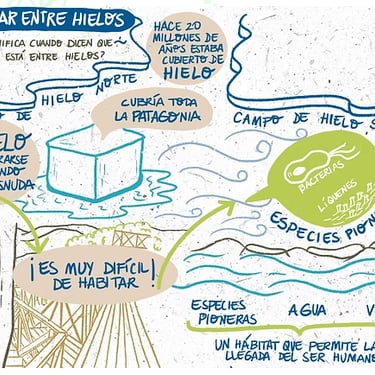 AR ENTRE HIELOS
NIFICA CUANDO DICEN QUE
ESTÁ ENTRE HIELOS?
HACE 20
MILLONES DE
AÑOS ESTABA
CUBIERTO DE
HIELO
O DE HIELO NORTE
CUBRÍA TODA
LA PATAGONIA
CAMPO DE HIELO S
ELO
RARSE
NDO
SNUDA.
BACTERIAS
LIQUENES
ESPECIES PION
¡ES MUY DIFÍCIL!
DE HABITAR
ESPECIES
PIONERAS
AGUA
V
UN HÁBITAT QUE PERMITE LA
LLEGADA DEL SER HUMAN